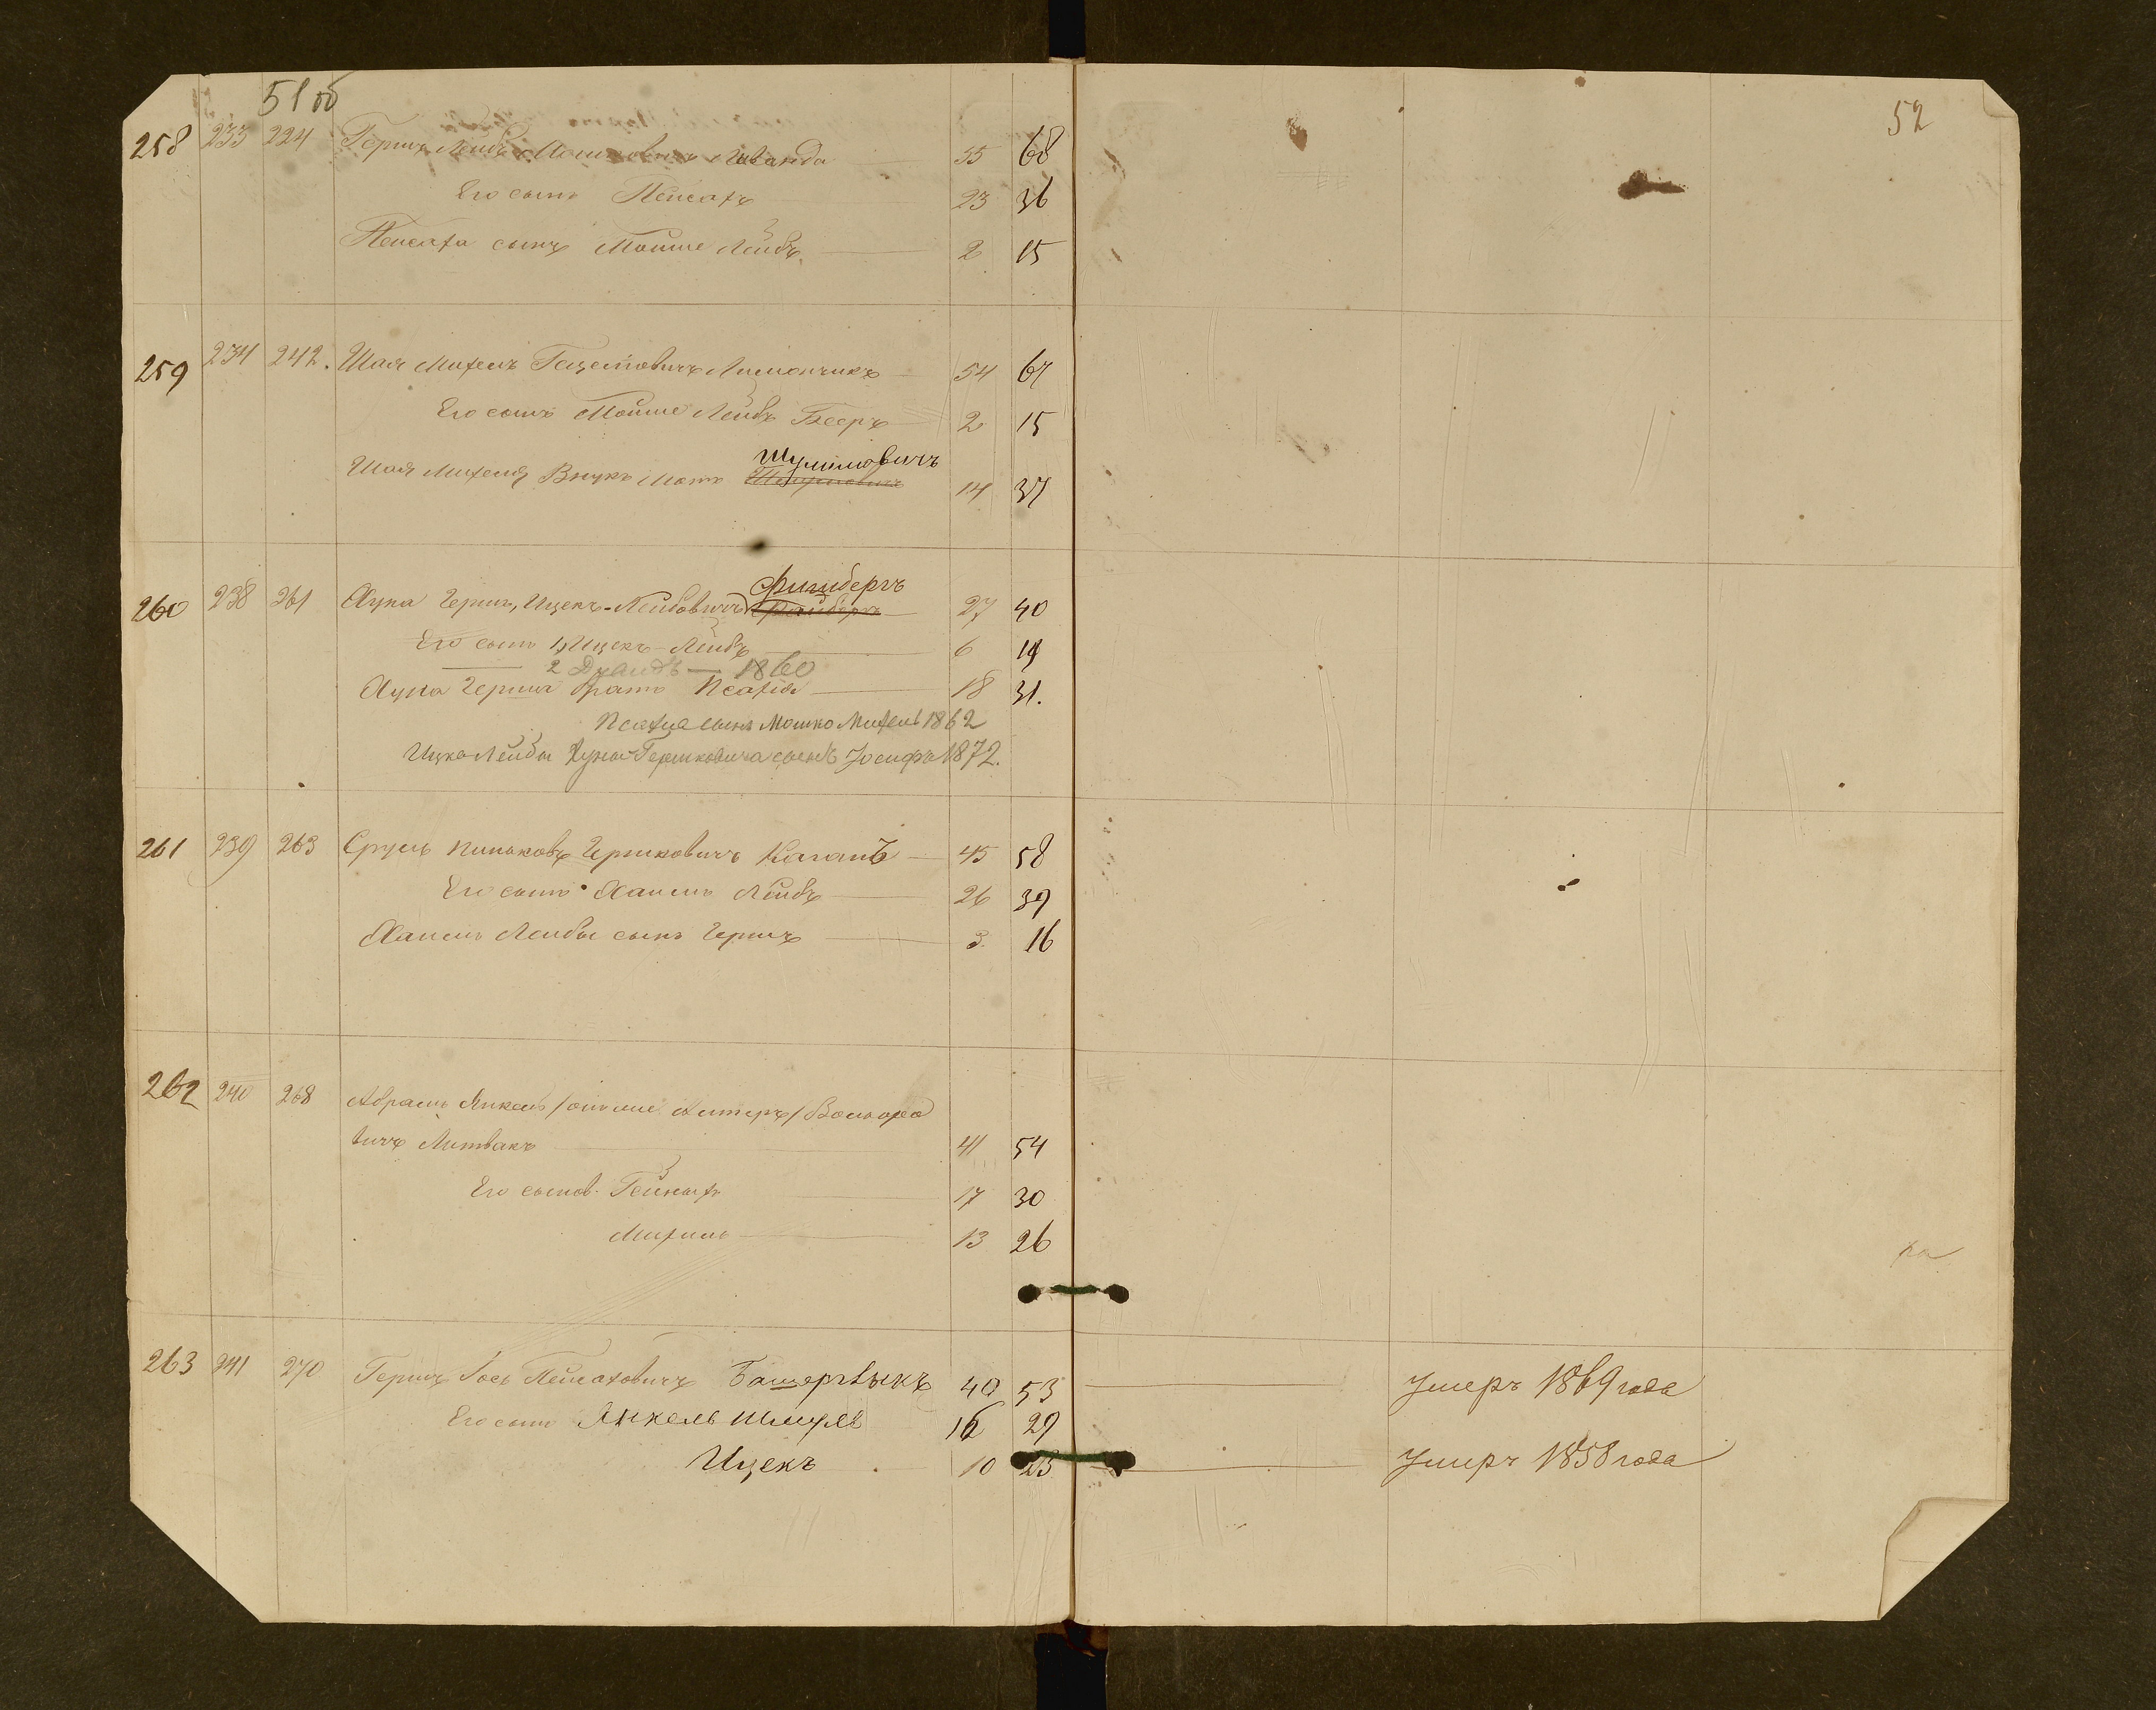 51 об
52
258 233 224 Герш Лейбъ Мошковичъ Шванда 55 68
Его сынъ Пейсахъ 23 36
Пейсаха сынъ Мойше Лейбъ 2 15
259 234 242. Шая Михель Гецелевичъ Лимончикъ 54 67
Его сынъ Мойше Лейбъ Бееръ 2 15
Шулимовичъ
Шая Михеля Внукъ Мотя 14 37
Фишбергъ
260 238 261 Хуна Герш, Ицекъ-Лейбовичъ 27 40
Его сынъ 1, Ицекъ-Лейбъ 6 19
2 — 1860
Хуна Герша братъ Псахія 18 31.
Псахіе сынъ Мошко Михель 1862
Ицко Лейбы Хуны-Гершковича сынъ Іосифъ 1872.
261 239 263 Сруль Пиньковъ Гершковичъ Каганъ 45 58
Его сынъ Хаимъ Лейбъ 26 39
Хаимъ Лейбы сынъ Гершъ 3. 16
262 240 268 Абрамъ Янкель /онъ же Алтеръ/ Вольфо
вичъ Литвакъ 41 54
Его сынов. Гейнихъ 17 30
Михель 13 26
263 241 270 Гершъ Іось Пейсаховичъ Башергвыкъ 40 53 Умеръ 1869 года
Его сынъ Янкель Шмуль 16 29
Ицекъ 10 23 Умеръ 1858 года